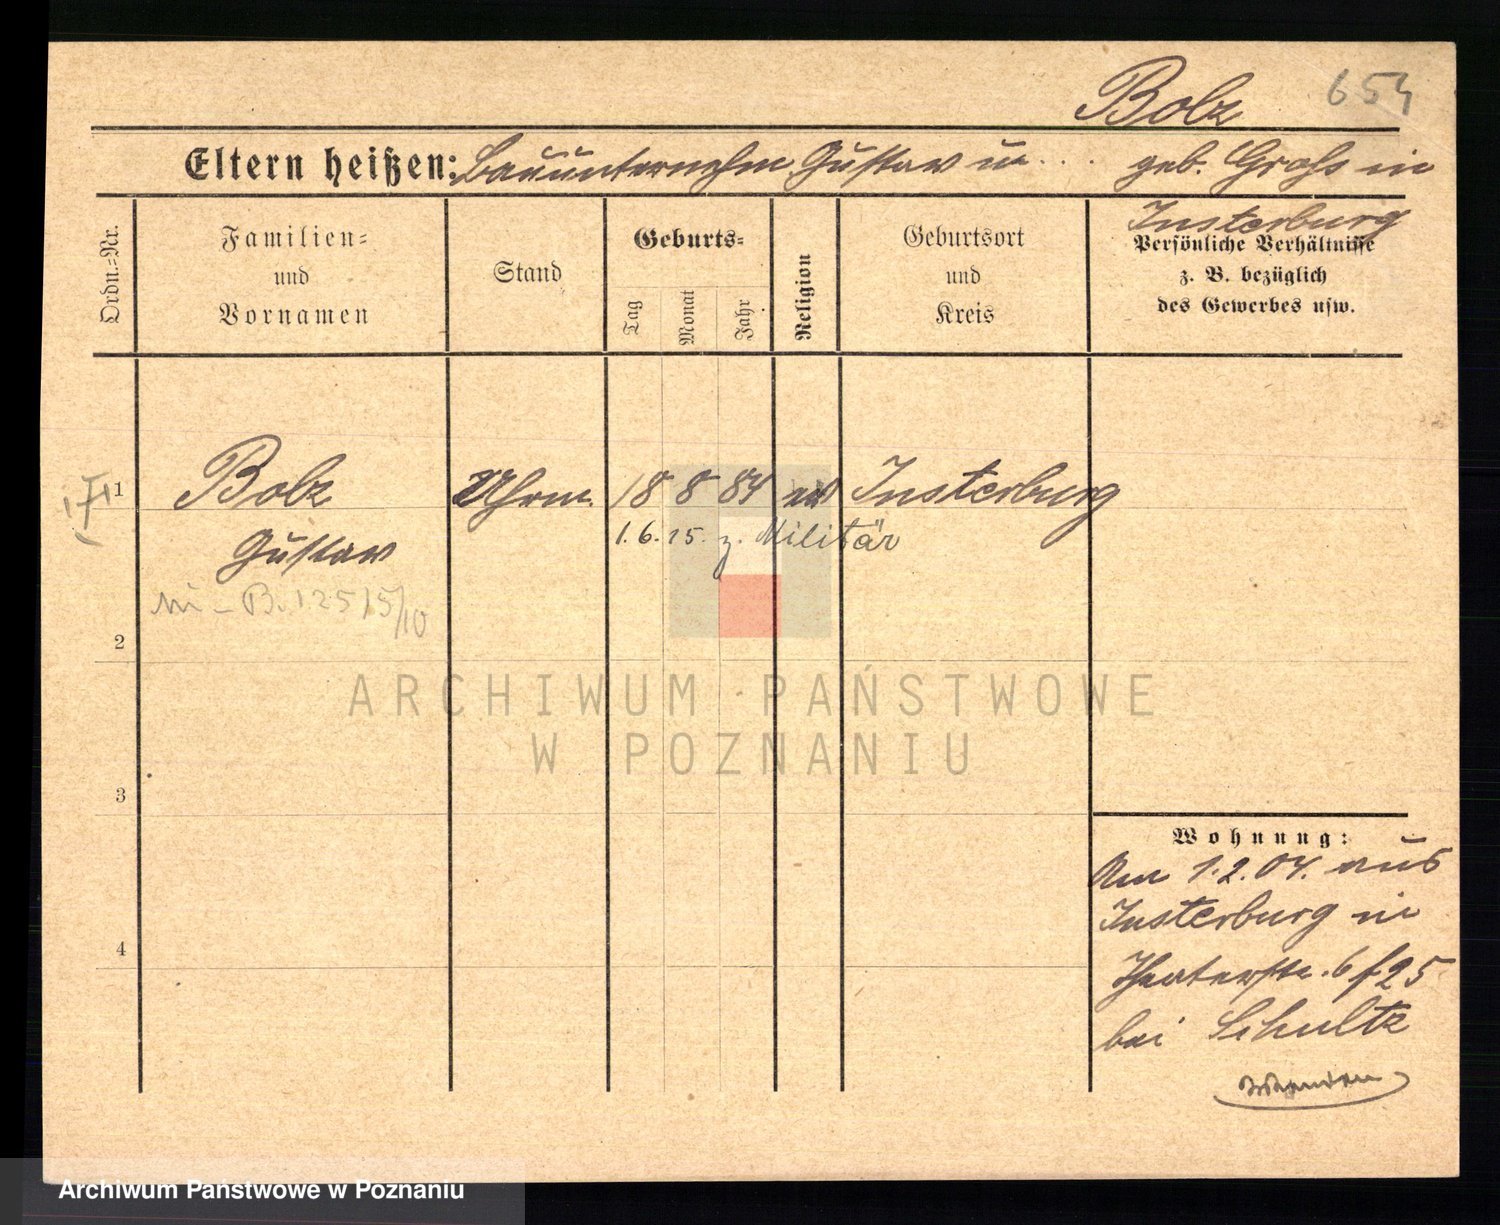 Bolz 654
Eltern heißen: Bauunternehm. Gustav u. . . . geb. Groß in
Insterburg
Ordn.=Nr.
Familien=
und
Vornamen
Stand
Geburts=
Tag
Monat
Jahr
Religion
Geburtsort
und
Kreis
Persönliche Verhältnisse
z. B. bezüglich
des Gewerbes usw.
1 Bolz Uhrm. 18 8 84 ev Insterburg
Gustav 1. 6. 15. z. Militär
B. 12515/10
2
ARCHIWUM PAŃSTWOWE
W POZNANIU
3
Wohnung:
Am 1.2.04. aus
Insterburg in
4
Theaterstr. 6 f 25
bei Schultz
Archiwum Państwowe w Poznaniu